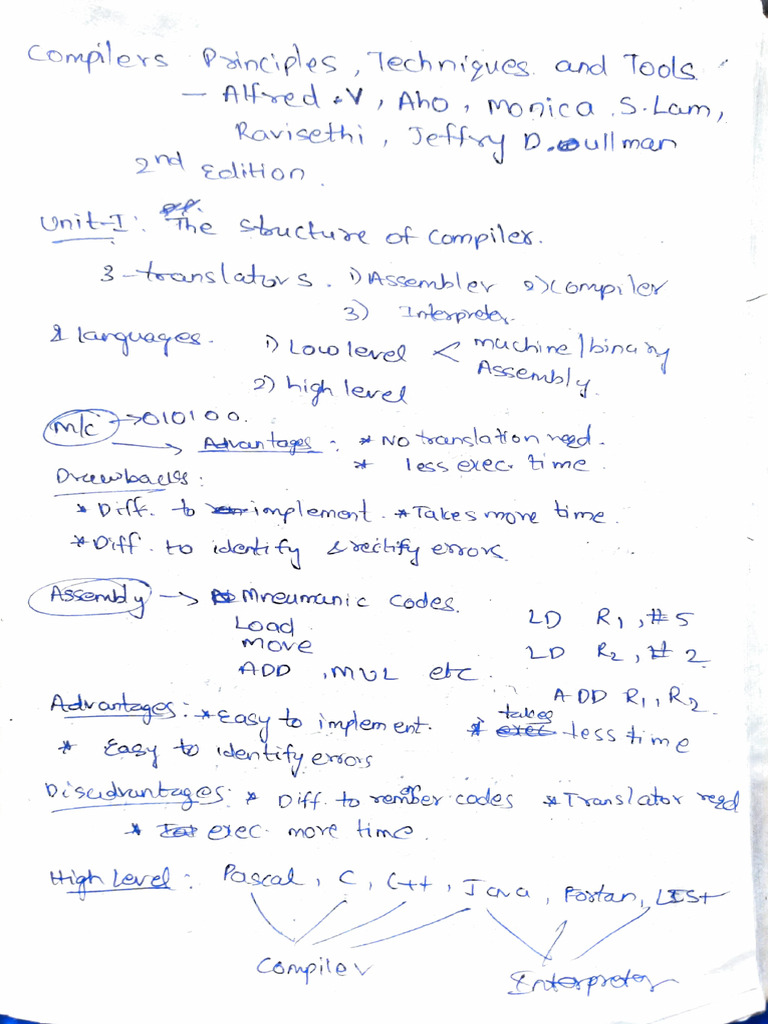 Compilers Principles, Techniques and Tools
- Alfred .V, Aho, Monica .S. Lam,
Ravisethi, Jeffry D. ullman
2nd Edition.
Unit-I: The structure of compiler.
3-translators. 1) Assembler 2) compiler
3) Interpreter.
2 languages. 1) Low level < machine/binary
Assembly.
2) high level
m/c → 010100.
→ Advantages: * No translation need.
* less exec. time.
Drawbacks:
* Diff. to implement. * Takes more time.
* Diff. to identify & rectify errors.
Assembly → Mneumanic codes.
Load
move
ADD, MUL etc.
LD R1, #5
LD R2, #2
ADD R1, R2.
Advantages: * Easy to implement. * takes less time
* Easy to identify errors
Disadvantages: * Diff. to rember codes * Translator reqd
* exec. more time.
High Level: Pascal, C, C++, Java, Fortan, LISt
Compiler Interpreter